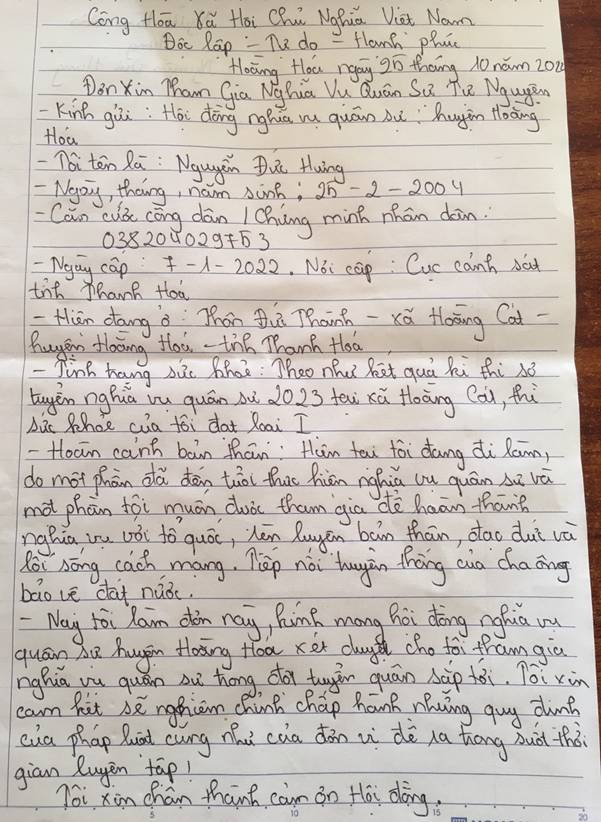 Cộng Hòa Xã Hội Chủ Nghĩa Việt Nam
Độc lập – Tự do – Hạnh phúc
Hoằng Hoá ngày 25 tháng 10 năm 202
Đơn Xin Tham Gia Nghĩa Vụ Quân Sự Tự Nguyện
- Kính gửi : Hội đồng nghĩa vụ quân sự : huyện Hoằng
Hoá
- Tôi tên là : Nguyễn Đức Hưng
- Ngày, tháng, năm sinh : 25 - 2 - 2004
- Căn cước công dân / Chứng minh nhân dân :
038204029753
- Ngày cấp : 7 - 1 - 2022. Nơi cấp : Cục cảnh sát
tỉnh Thanh Hoá
- Hiện đang ở : Thôn Đức Thành - xã Hoằng Cát -
huyện Hoằng Hoá - tỉnh Thanh Hoá
- Tình trạng sức khoẻ : Theo như kết quả kì thi sơ
tuyển nghĩa vụ quân sự 2023 tại xã Hoằng Cát, thì
sức khoẻ của tôi đạt loại I
- Hoàn cảnh bản thân : Hiện tại tôi đang đi làm,
do một phần đã đến tuổi thực hiện nghĩa vụ quân sự và
một phần tôi muốn được tham gia để hoàn thành
nghĩa vụ với tổ quốc, rèn luyện bản thân, đạo đức và
lối sống cách mạng. Tiếp nối truyền thống của cha ông
bảo vệ đất nước.
- Nay tôi làm đơn này, kính mong hội đồng nghĩa vụ
quân sự huyện Hoằng Hoá xét duyệt cho tôi tham gia
nghĩa vụ quân sự trong đợt tuyển quân sắp tới. Tôi xin
cam kết sẽ nghiêm chỉnh chấp hành những quy định
của pháp luật cũng như của đơn vị đề ra trong suốt thời
gian luyện tập!
Tôi xin chân thành cảm ơn Hội đồng.
5 10 15 20